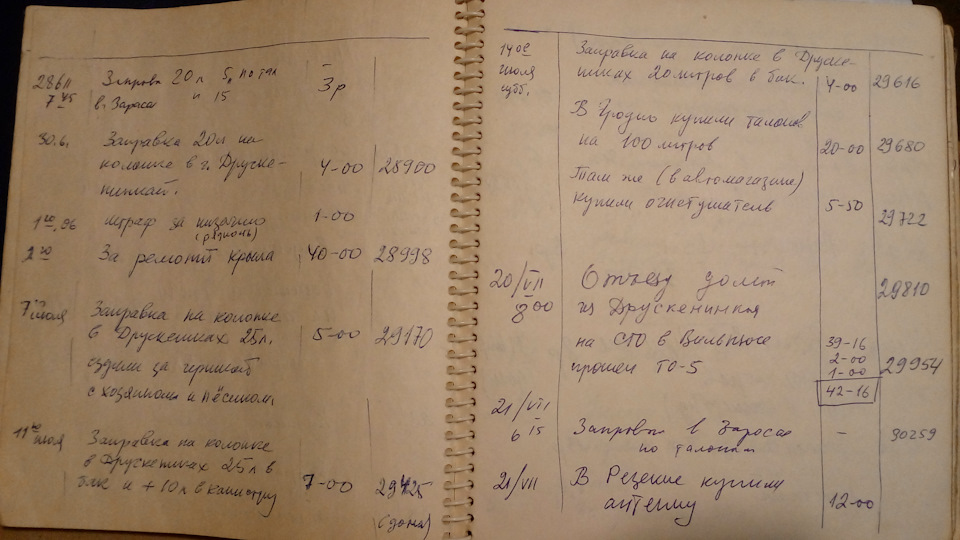 286
7 45
Заправка 20 л 5 р по тал
в. Зарасае и 15
3р
30.6.
Заправка 20л на
колонке в г. Друске-
нинкай.
4-00 28900
штраф за
1-00
2го
За ремонт крыла 40-00 28998
7 июля
Заправка на колонке
в Друскениках 25 л.
5-00 29170
ездили за черникой
с хозяином и Пёсиком
11 июля
Заправка на колонке
в Друскениках 25 л в
бак и +10 л в канистру
7-00 29425
(дома)
14ое
июля
субб.
Заправка на колонке в Друске-
никах 20 литров в бак.
4-00 29616
В Гродно купили талонов
на 100 литров
20-00 29680
Там же (в автомагазине)
купили огнетушитель
5-50
29722
20/VII
8 00
Отъезд домой
из Друскенинкая
29810
на СТО в Вильнюсе
прошел ТО-5
39-16
2-00
1-00
42-16
29954
21/VII
6 15
Заправка в Зарасае
по талонам
- 30259
21/VII
В Резекне купили
антенну
12-00